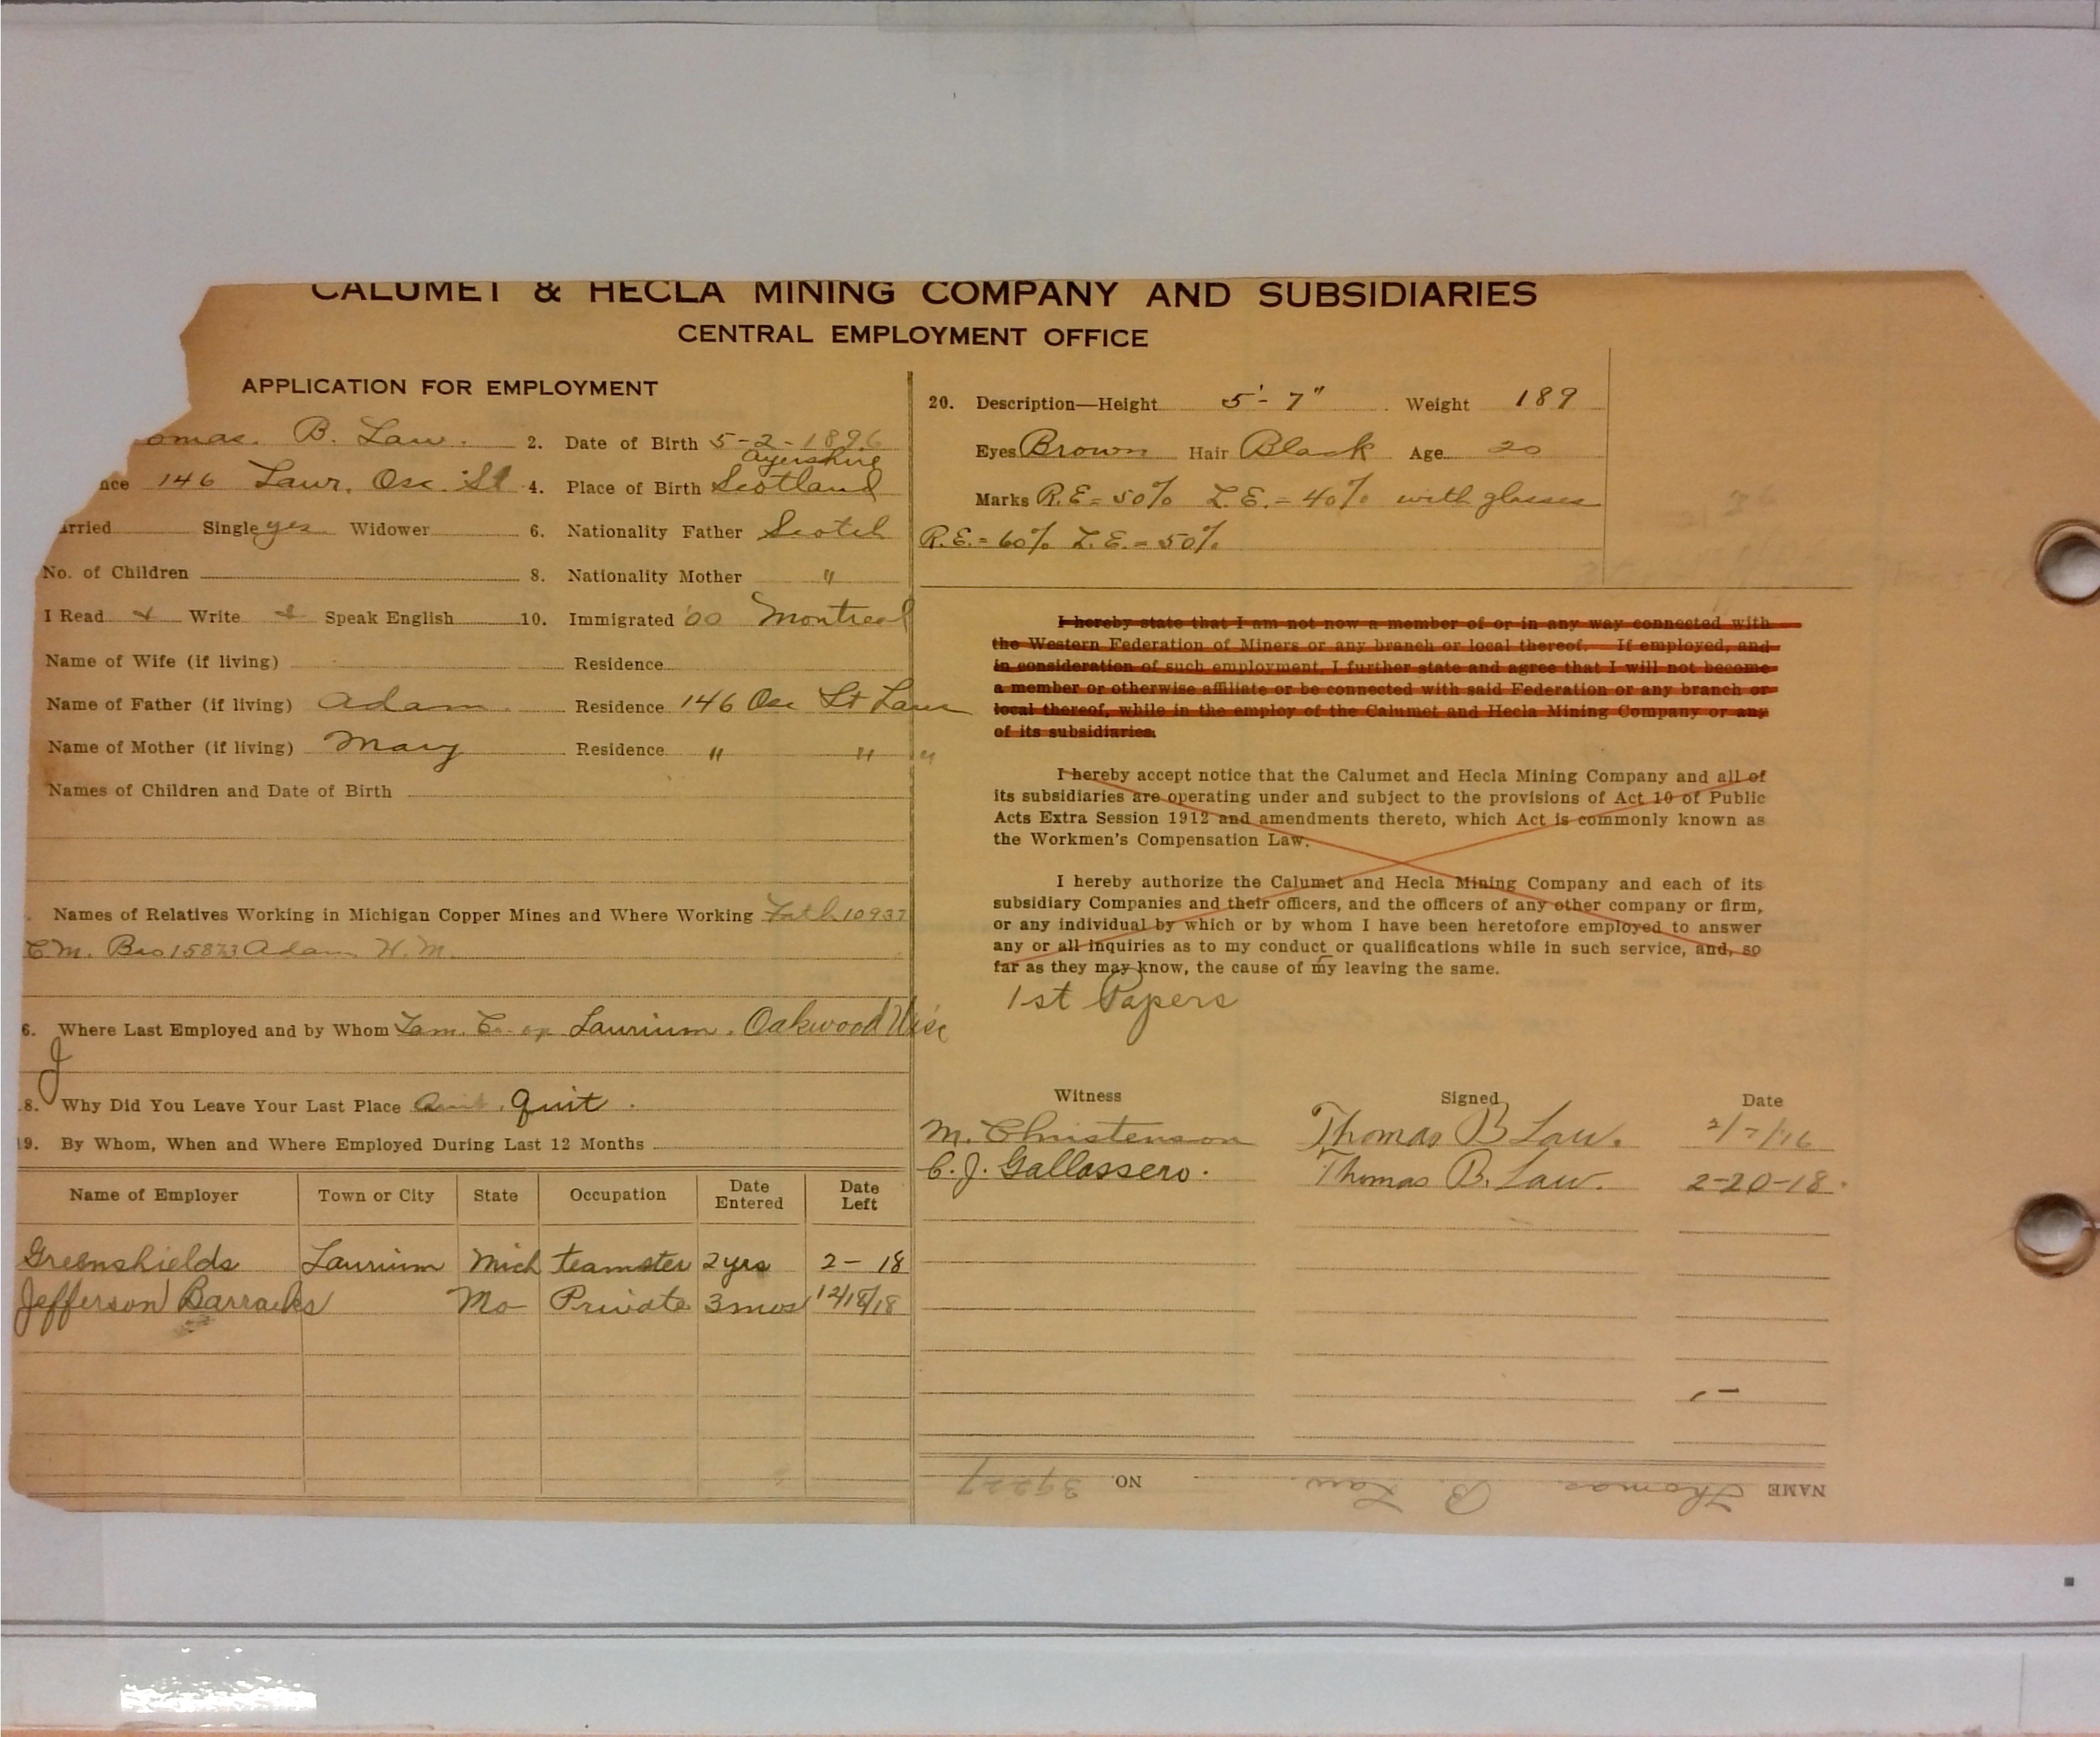 CALUMET & HECLA MINING COMPANY AND SUBSIDIARIES
CENTRAL EMPLOYMENT OFFICE
APPLICATION FOR EMPLOYMENT
omas. B. Law. 2. Date of Birth 5-2-1896
Ayershire
nce 146 Laur. Osc. St 4. Place of Birth Scotland
arried Single yes Widower 6. Nationality Father Scotch
No. of Children 8. Nationality Mother "
I Read & Write & Speak English 10. Immigrated '00 Montreal
Name of Wife (if living) Residence
Name of Father (if living) Adam. Residence 146 Osc St Laur
Name of Mother (if living) Mary Residence " " "
Names of Children and Date of Birth
Names of Relatives Working in Michigan Copper Mines and Where Working Fath 10937
C.M. Bro 15873 Adam H.M.
6. Where Last Employed and by Whom Tam. Co-op Laurium. Oakwood Wisc
8. Why Did You Leave Your Last Place Quit. Quit.
19. By Whom, When and Where Employed During Last 12 Months
Name of Employer Town or City State Occupation Date Entered Date Left
Greenshields Laurium Mich teamster 2 yrs 2 - 18
Jefferson Barracks Mo Private 3 mos 12/18/18
20. Description—Height 5'-7" Weight 189
Eyes Brown Hair Black Age 20
Marks R.E = 50% L.E. = 40% with glasses
R.E. = 60% L.E. = 50%
I hereby state that I am not now a member of or in any way connected with
the Western Federation of Miners or any branch or local thereof. If employed, and
in consideration of such employment, I further state and agree that I will not become
a member or otherwise affiliate or be connected with said Federation or any branch or
local thereof, while in the employ of the Calumet and Hecla Mining Company or any
of its subsidiaries.
I hereby accept notice that the Calumet and Hecla Mining Company and all of
its subsidiaries are operating under and subject to the provisions of Act 10 of Public
Acts Extra Session 1912 and amendments thereto, which Act is commonly known as
the Workmen's Compensation Law.
I hereby authorize the Calumet and Hecla Mining Company and each of its
subsidiary Companies and their officers, and the officers of any other company or firm,
or any individual by which or by whom I have been heretofore employed to answer
any or all inquiries as to my conduct or qualifications while in such service, and, so
far as they may know, the cause of my leaving the same.
1st Papers
Witness Signed Date
M. Christenson Thomas B Law. 2/7/16
C. J. Gallassero. Thomas B. Law. 2-20-18.
NAME Thomas B. Law. NO. 39227